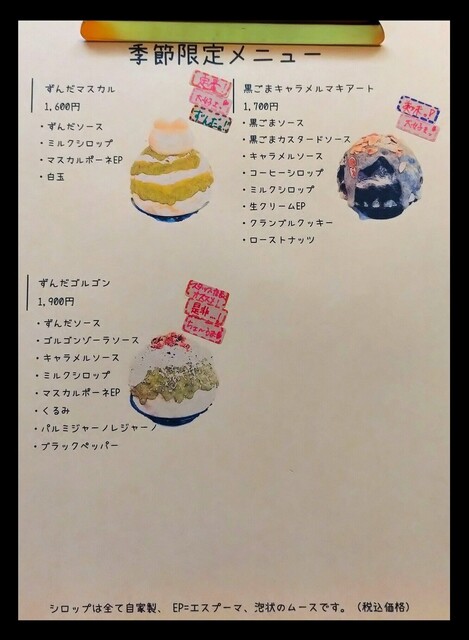 季節限定メニュー
ずんだマスカル
1,600円
・ずんだソース
・ミルクシロップ
・マスカルポーネEP
・白玉
黒ごまキャラメルマキアート
1,700円
・黒ごまソース
・黒ごまカスタードソース
・キャラメルソース
・コーヒーシロップ
・ミルクシロップ
・生クリームEP
・クランブルクッキー
・ローストナッツ
ずんだゴルゴン
1,900円
・ずんだソース
・ゴルゴンゾーラソース
・キャラメルソース
・ミルクシロップ
・マスカルポーネEP
・くるみ
・パルミジャーノレジャーノ
・ブラックペッパー
シロップは全て自家製、EP=エスプーマ、泡状のムースです。（税込価格）